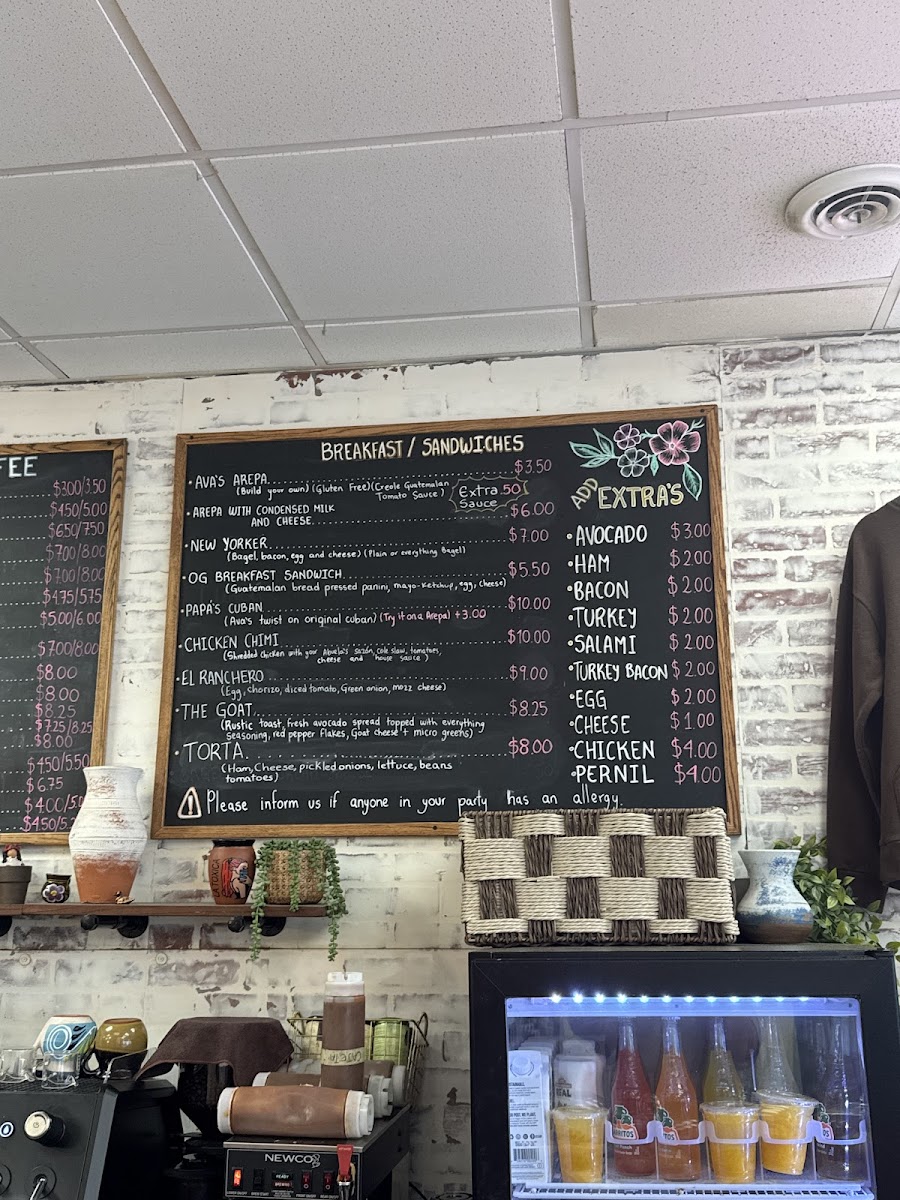 FEE
$3.00/3.50
$4.50/5.00
$6.50/7.50
$7.00/8.00
$7.00/8.00
$4.75/5.75
$5.00/6.00
$7.00/8.00
$8.00
$8.00
$8.25
$7.25/8.25
$8.00
$4.50/5.50
$6.75
$4.00/5.0
$4.50/5.
BREAKFAST / SANDWICHES
• AVA'S AREPA $3.50
(Build your own) (Gluten Free) (Creole Guatemalan
Tomato Sauce)
extra .50
Sauce
• AREPA WITH CONDENSED MILK
AND CHEESE $6.00
• NEW YORKER $7.00
(Bagel, bacon, egg and cheese) (Plain or everything Bagel)
• OG BREAKFAST SANDWICH $5.50
(Guatemalan bread pressed panini, mayo-ketchup, egg, cheese)
• PAPA'S CUBAN $10.00
(Ava's twist on original cuban) (Try it on a Arepa) +3.00
• CHICKEN CHIMI $10.00
(Shredded chicken with your Abuela's sazón, cole slaw, tomatoes,
cheese and house sauce)
• EL RANCHERO $9.00
(Egg, chorizo, diced tomato, Green onion, mozz cheese)
• THE GOAT $8.25
(Rustic toast, fresh avocado spread topped with everything
seasoning, red pepper flakes, Goat cheese + micro greens)
• TORTA $8.00
(Ham, Cheese, pickled onions, lettuce, beans
tomatoes)
! Please inform us if anyone in your party has an allergy.
ADD EXTRA'S
• AVOCADO $3.00
• HAM $2.00
• BACON $2.00
• TURKEY $2.00
• SALAMI $2.00
• TURKEY BACON $2.00
• EGG $2.00
• CHEESE $1.00
• CHICKEN $4.00
• PERNIL $4.00
NEWCO
READY